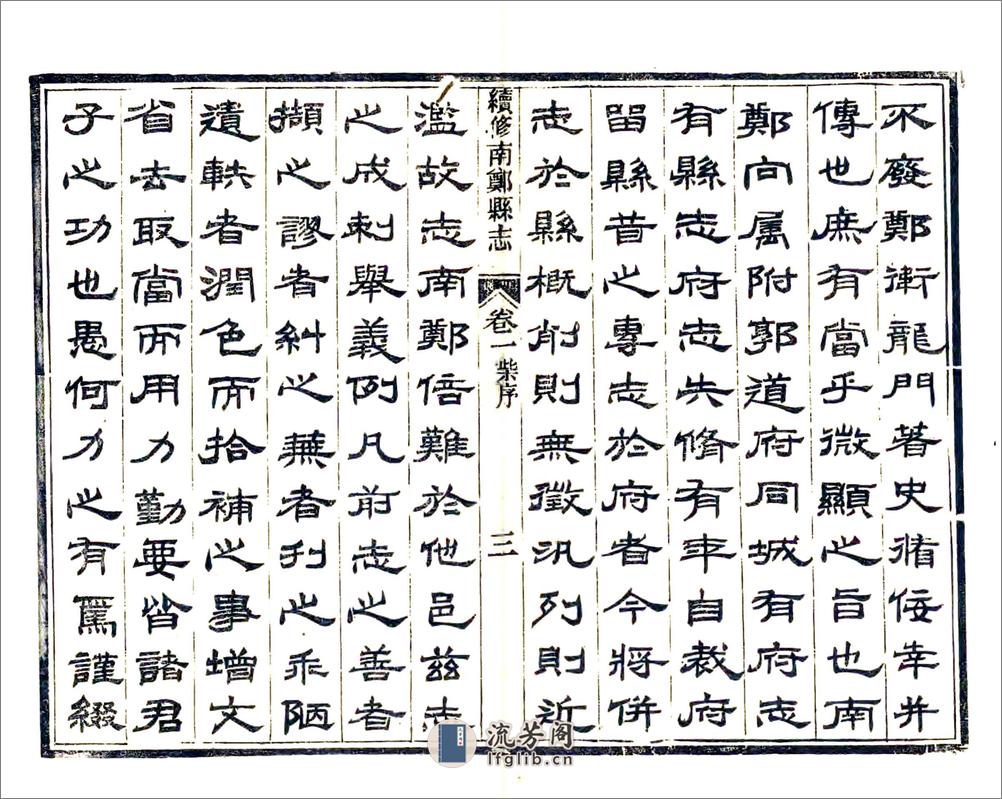 不廢鄭衛龍門著史猶佞幸并
傳世庶有當乎微顯之旨也南
鄭向属附郭道府同城有府志
有縣志府志失脩有年自裁府
畱縣昔之專志於府者今將併
志於縣概削則無徵汎列則近
續修南鄭縣志 卷一 柴序 三
濫故志南鄭倍難於他邑兹志
之成刺舉義例凡前志之善者
擷之謬者糾之蕪者刋之乖陋
遺軼者潤色而拾補之事增文
省去取當而用力勤要皆諸君
子之功也愚何力之有焉謹綴
流芳阁
lfglib.cn